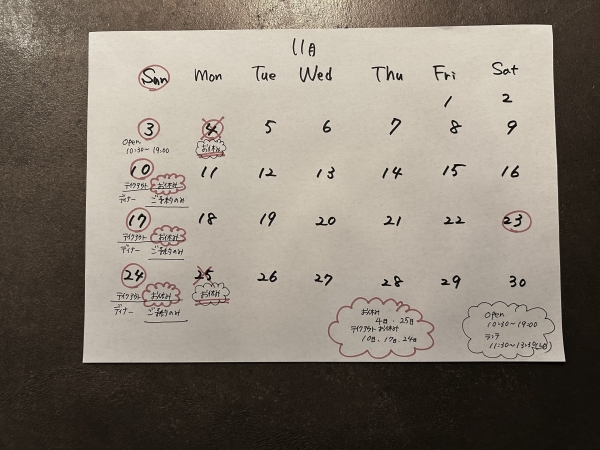 11月
Sun Mon Tue Wed Thu Fri Sat
1 2
3 4 5 6 7 8 9
Open
10:30~19:00
お休み
10 11 12 13 14 15 16
テイクアウト お休み
ディナー ご予約のみ
17 18 19 20 21 22 23
テイクアウト お休み
ディナー ご予約のみ
24 25 26 27 28 29 30
テイクアウト お休み
ディナー ご予約のみ
お休み
お休み
4日、25日
テイクアウト お休み
10日、17日、24日
Open
10:30~19:00
ランチ
11:30~13:30